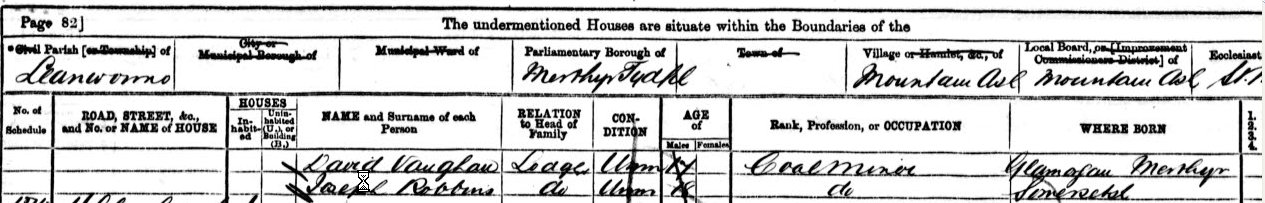 Page 82] The undermentioned Houses are situate within the Boundaries of the
Civil Parish [or Township] of City or Municipal Borough of Municipal Ward of Parliamentary Borough of Town of Village or Hamlet, &c., of Local Board, or [Improvement Commissioners District] of Ecclesiast
Llanwonno Merthyr Tydfil Mountain Ash Mountain Ash St.
No. of Schedule ROAD, STREET, &c., and No. or NAME of HOUSE HOUSES In-habit-ed Unin-habited (U.), or Building (B.) NAME and Surname of each Person RELATION to Head of Family CON-DITION AGE of Males Females Rank, Profession, or OCCUPATION WHERE BORN 1. 2. 3. 4.
David Vaughan Lodger Unm 17 Coal Miner Glamorgan Merthyr
Joseph Robbins do Unm 18 do Somerset